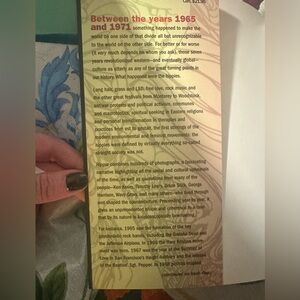 Can. $21.50
Between the years 1965
and 1971 something happened to make the
world on one side of that divide all but unrecognizable
to the world on the other side. For better or for worse
(it very much depends on whom you ask), those seven
years revolutionized western—and eventually global—
culture as utterly as any of the great turning points in
our history. What happened were the hippies.
Long hair, grass and LSD, free love, rock music and
the other great festivals from Monterey to Woodstock,
antiwar protests and political activism, communes
and macrobiotics, spiritual seeking in Eastern religions
and personal transformation in therapies and
practices from est to gestalt, the first stirrings of the
modern environmental and feminist movements, the
hippies were defined by virtually everything so-called
straight society was not.
Hippie combines hundreds of photographs, a fascinating
narrative highlighting all the social and cultural ephemera
of the time, as well as quotations from many of the
people—Ken Kesey, Timothy Leary, Grace Slick, George
Harrison, Wavy Gravy, and many others—who lived through
and shaped the counterculture. Proceeding year by year, it
gives an unprecedented shape and coherence to a time
that by its nature is kaleidoscopically
For instance, 1965 saw the formation of the key
psychedelic rock bands, including the Grateful Dead and
the Jefferson Airplane. In 1966 the
were born. 1967 was the year of the Summer of
Love in San Francisco's Haight-Ashbury and the release
of the Beatles' Sgt. Pepper. In 1968 politics
(continued on back flap)